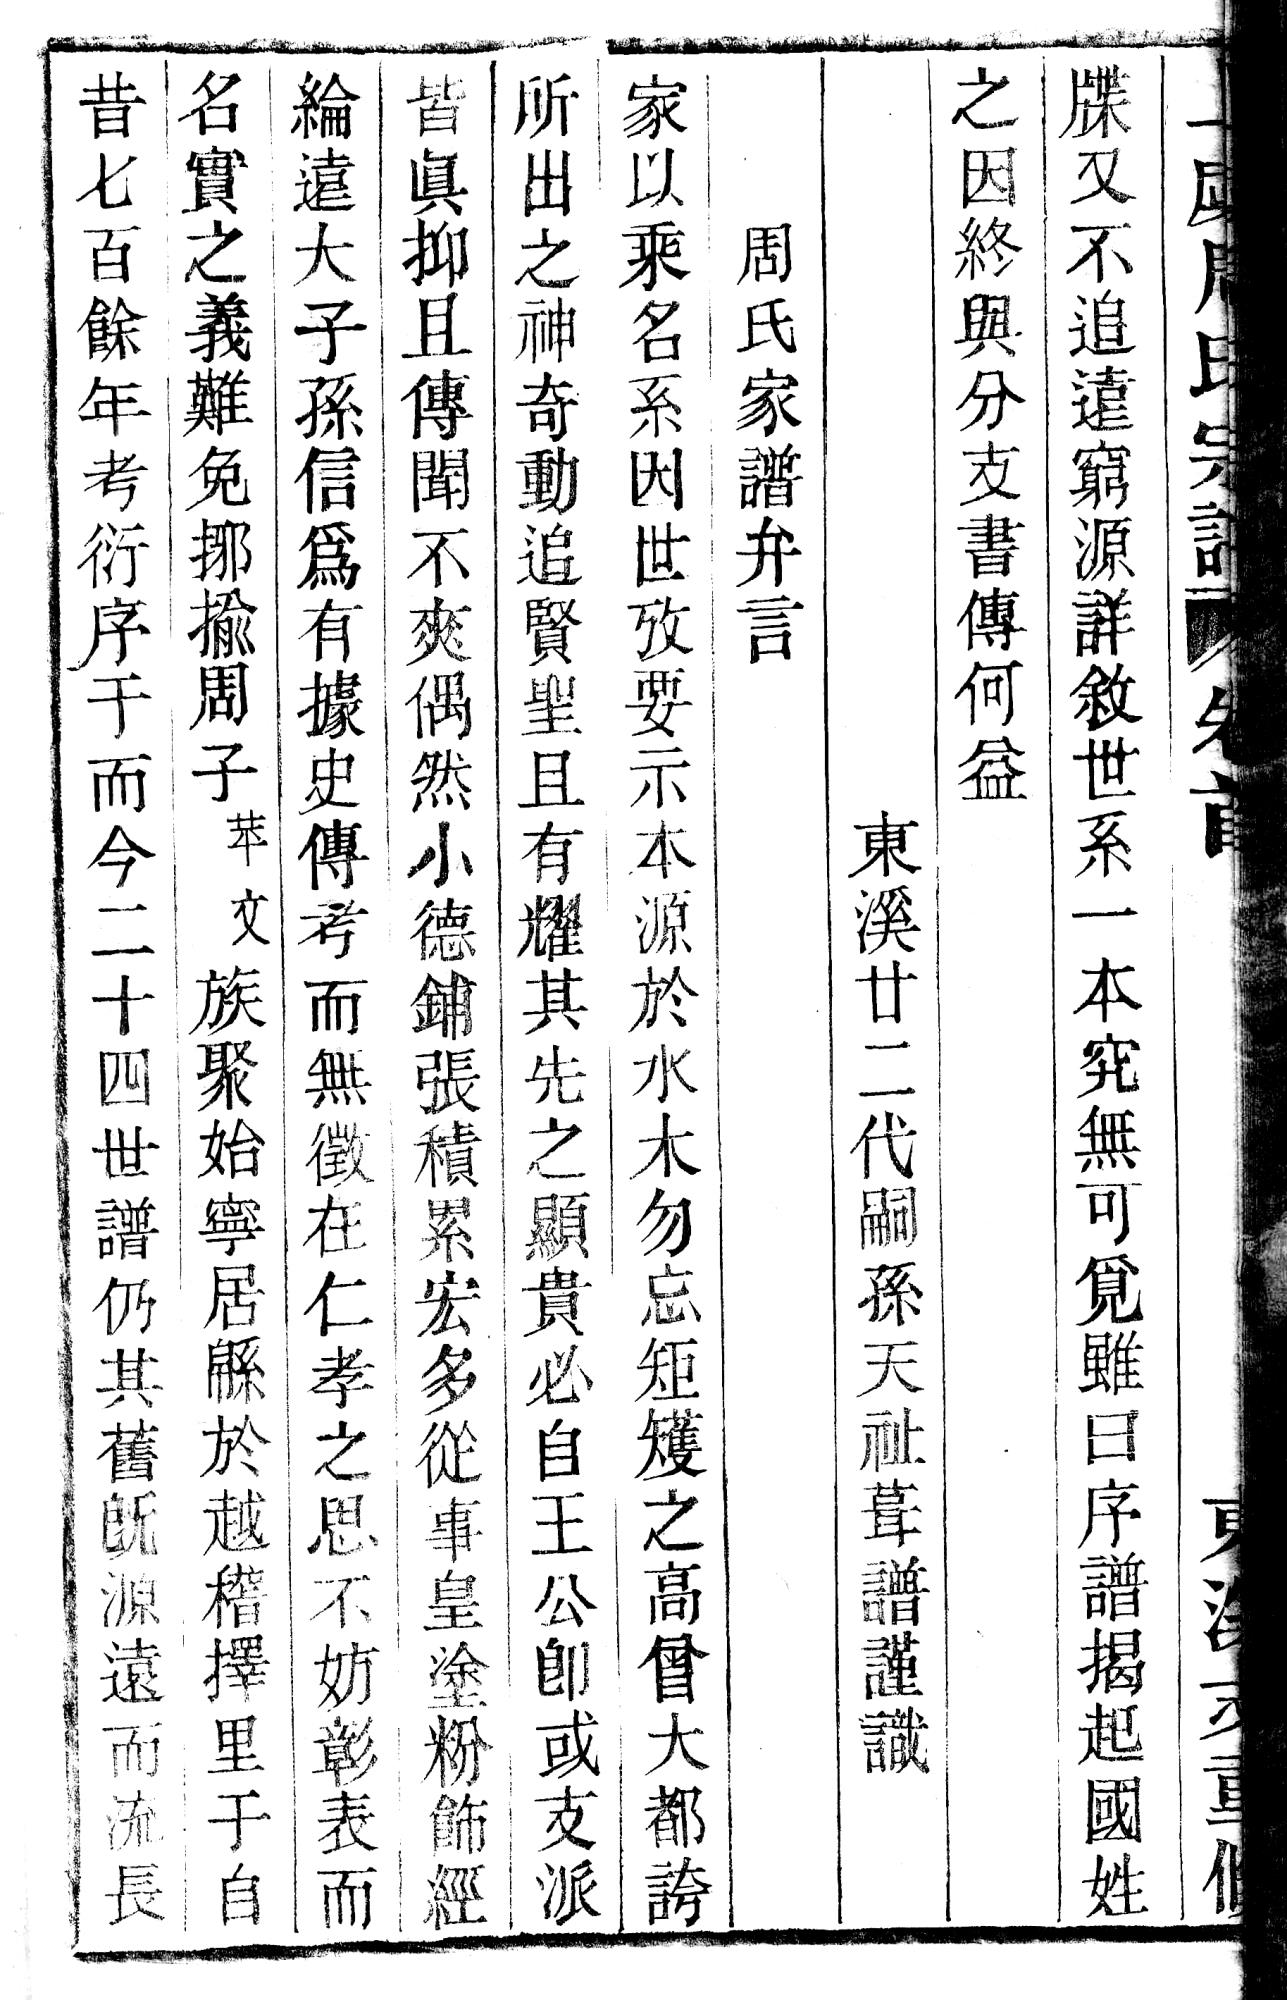 周氏宗譜 卷首 東溪 重修
牒又不追遠窮源詳敘世系一本究無可覓雖曰序譜揭起國姓
之因終與分支書傳何益
東溪廿二代嗣孫天祉葺譜謹識
周氏家譜弁言
家以乘名系因世攷要示本源於水木勿忘矩矱之高曾大都誇
所出之神奇動追賢聖且有耀其先之顯貴必自王公卽或支派
皆眞抑且傳聞不爽偶然小德鋪張積累宏多從事皇塗粉飾經
綸遠大子孫信爲有據史傳考而無徵在仁孝之思不妨彰表而
名實之義難免揶揄周子苹文族聚始寧居緜於越稽擇里于自
昔七百餘年考衍序于而今二十四世譜仍其舊旣源遠而流長